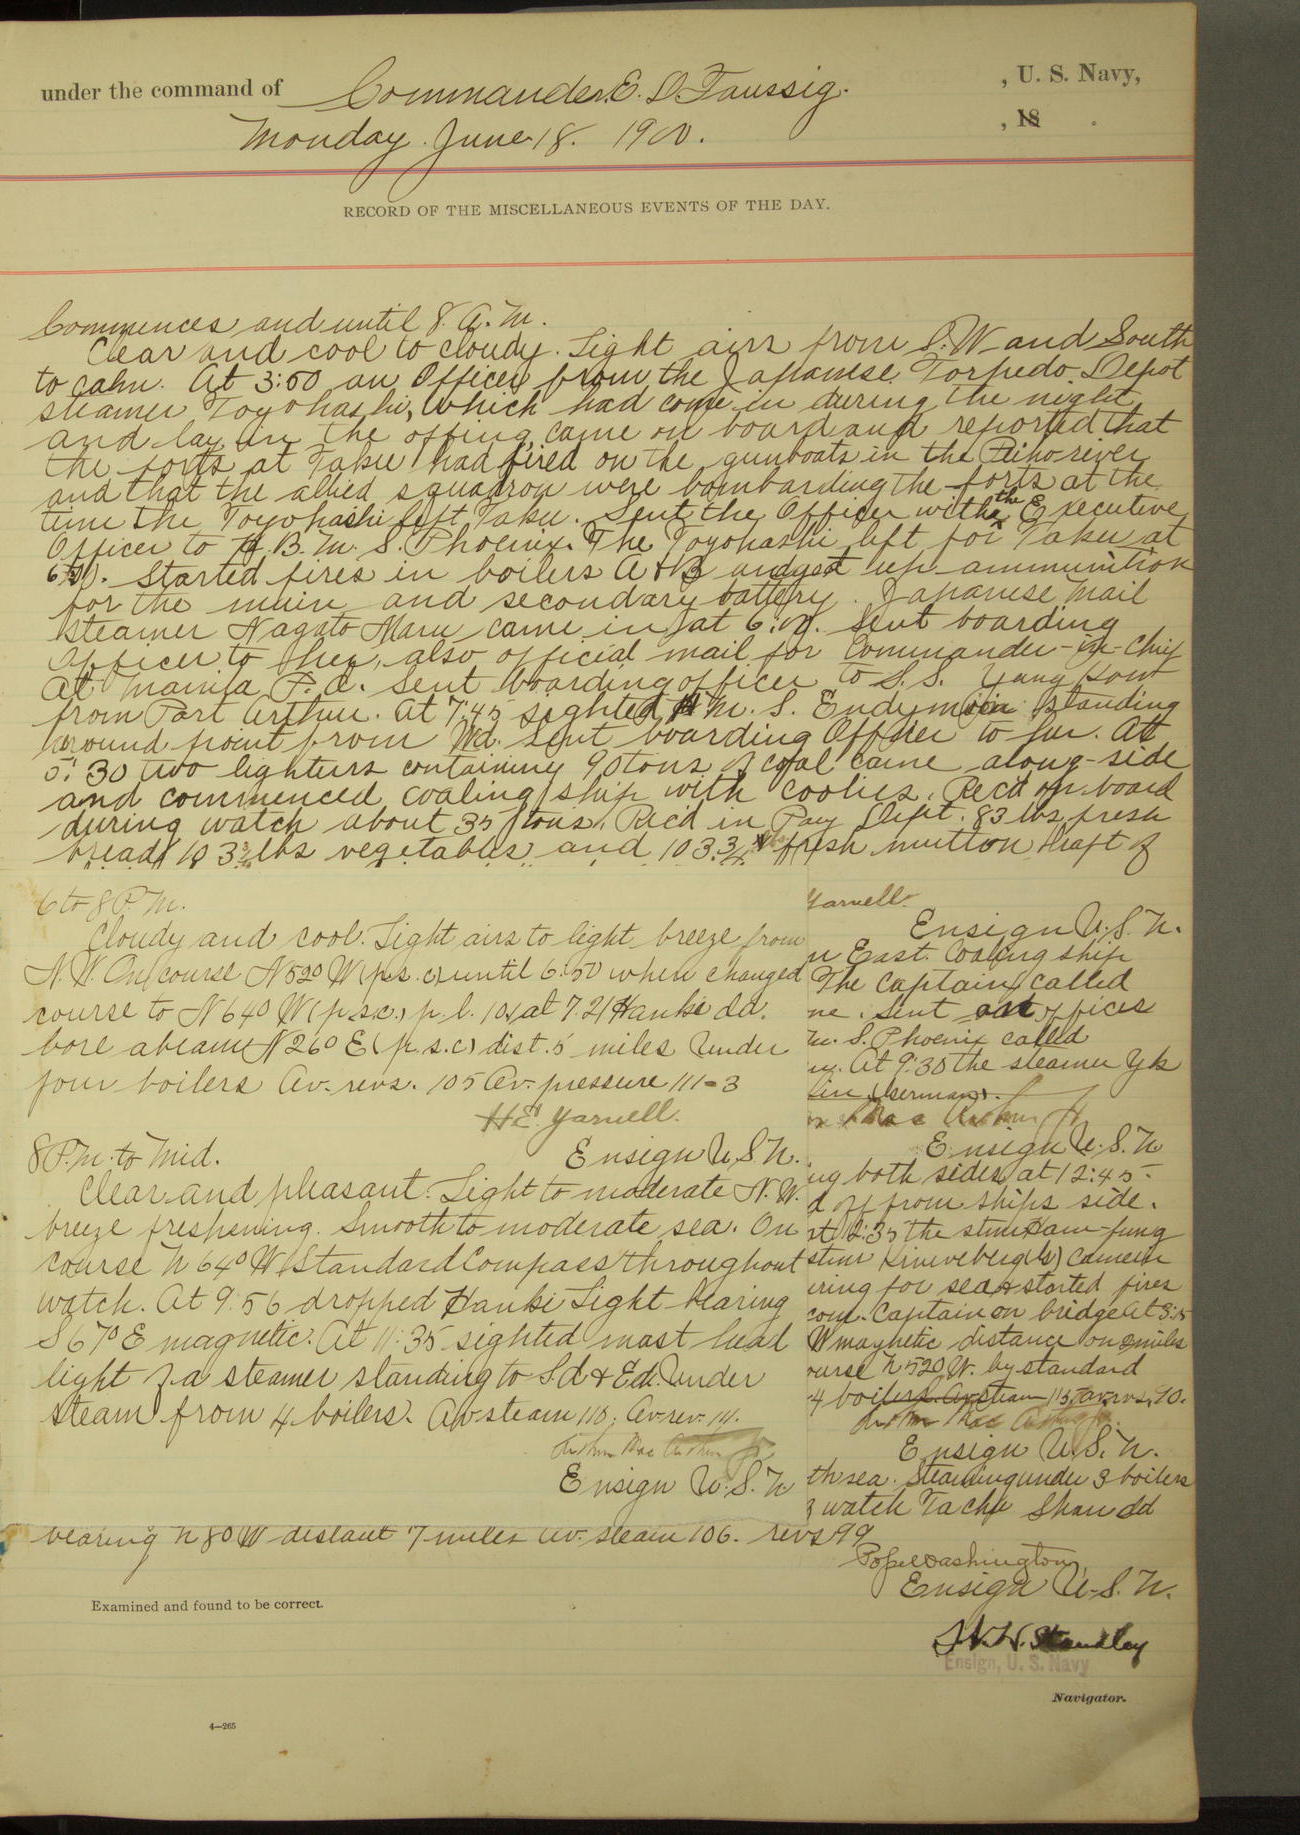 under the command of Commander E. D. Taussig. , U. S. Navy,
Monday June 18. 1900. , 18 .
RECORD OF THE MISCELLANEOUS EVENTS OF THE DAY.
Commences and until 8 A. M.
Clear and cool to cloudy. Light airs from S. W and South
to calm. At 3:50 an Officer from the Japanese Torpedo Depot
steamer Toyohashi, which had come in during the night
and lay in the offing came on board and reported that
the forts at Taku had fired on the gunboats in the Peiho river
and that the allied squadron were bombarding the forts at the
time the Toyohashi left Taku. Sent the Officer with the Executive
Officer to H. B. M. S. Phoenix. The Toyohashi left for Taku at
Started fires in boilers A & B and got up ammunition
for the main and secondary battery. Japanese Mail
steamer Nagato Maru came in at Sent boarding
officer to her, also official mail for Commander-in-Chief
at Manila P. I. Sent boarding officer to S. S.
from Port Arthur. At 7:45 sighted H. M. S. Endymion standing
around point from Wd. Sent boarding Officer to her. At
5:30 two lighters containing 90 tons of coal came along-side
and commenced coaling ship with coolies. Rec'd on board
during watch about 35 tons. Rec'd in Pay Dept. 83 lbs fresh
bread lbs vegetables and 103 3/4 fresh mutton Draft of
6 to 8 P. M.
Cloudy and cool. Light airs to light breeze from
N. W. On course N52° W (p.s.c) until 6:50 when changed
course to N 64° W (p.s.c.) p. l. at 7.21 Hanki Id.
bore abeam N26° E (p.s.c) dist. 5 miles Under
four boilers Av. revs. 105 Av. pressure 111-3
H E Yarnell.
Ensign U S N.
8 P. M. to Mid.
Clear and pleasant. Light to moderate N. W.
breeze freshening. Smooth to moderate sea. On
course N 64° W Standard Compass throughout
watch. At 9:56 dropped Hanki Light bearing
S 67° E magnetic. At 11:35 sighted mast head
light of a steamer standing to Sd & Ed. Under
steam from 4 boilers. Av steam 110; Av. rev.
Arthur Mac Arthur Jr
Ensign U. S. N
Yarnell.
Ensign U. S. N.
n East. Coaling ship
The Captain called
ne. Sent out offices
m. S. Phoenix called
At 9:30 the steamer
lin (German).
Mac Arthur Jr
Ensign U. S. N
ing both sides, at 12:45
d off from ships side.
at 12:35 the stmr
stmr came in
ring for sea & started fires
com. Captain on bridge At
W magnetic distance one miles
ourse N 52° W. by standard
4 boilers. Av steam 115, av. revs. 90.
Arthur Mac Arthur Jr.
Ensign U. S. N.
th sea. Steaming under 3 boilers
watch Shan Id
bearing N 8° W distant 7 miles Av. steam 106. revs 99
Pope Washington
Ensign U. S. N.
Examined and found to be correct.
W. H. Standley
Ensign, U. S. Navy
Navigator.
4—265